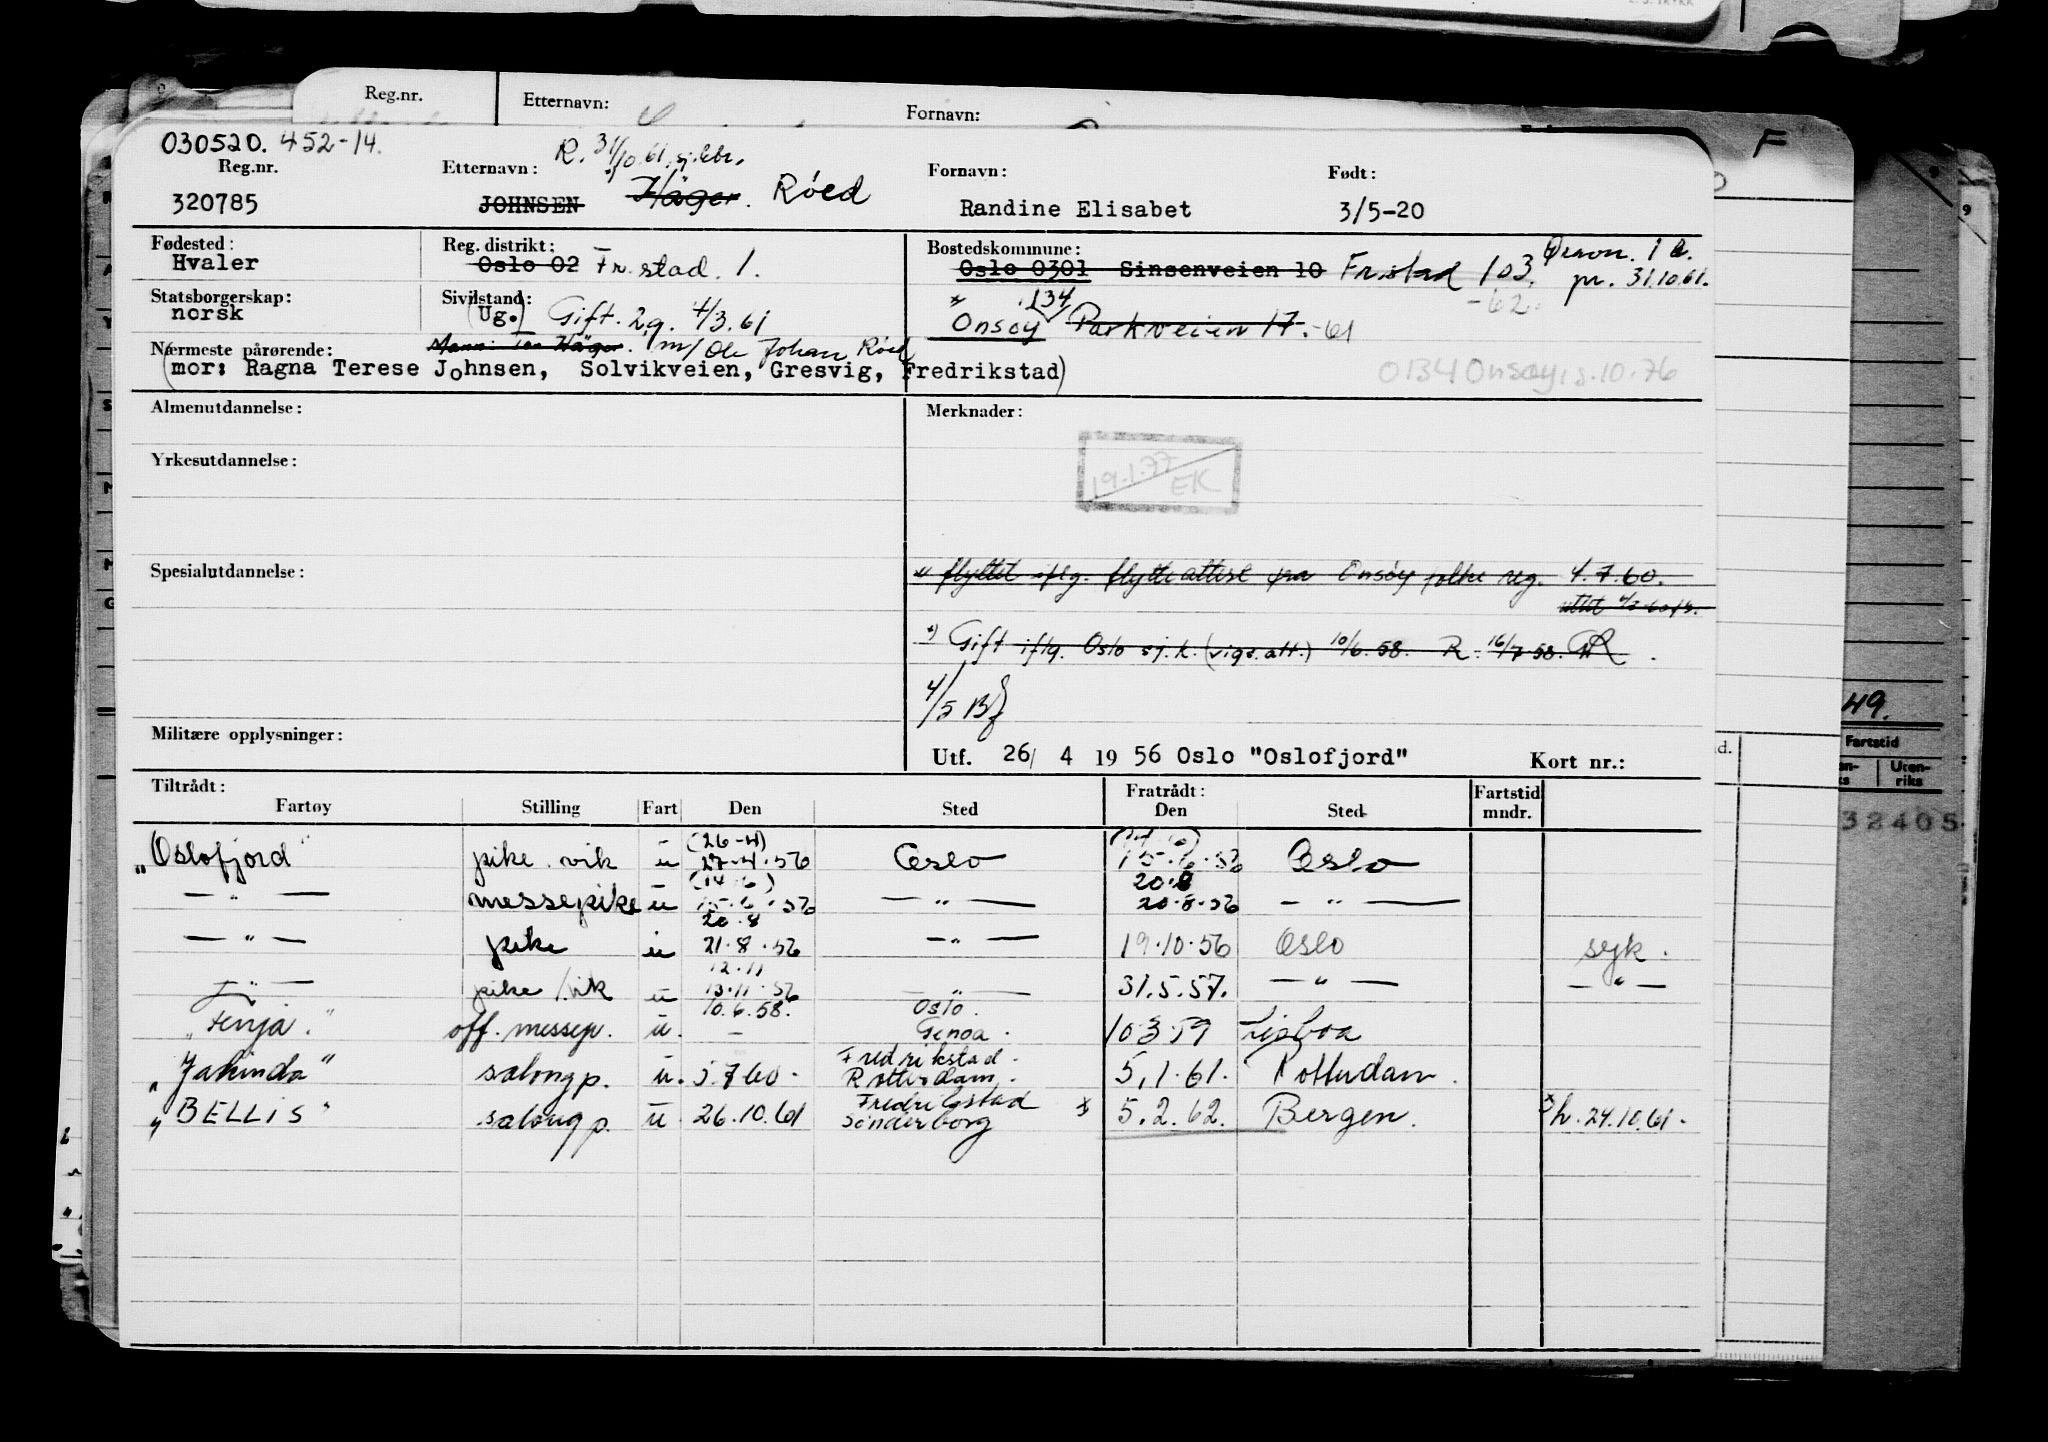 Reg.nr.
Etternavn:
Fornavn:
F
030520. 452-14.
R. 31/10.61
Reg.nr.
Etternavn:
Fornavn:
Født:
320785
JOHNSEN Häger. Röed
Randine Elisabet
3/5-20
Fødested:
Reg. distrikt:
Bostedskommune:
Hvaler
Oslo 02 Fr.stad. 1.
Oslo 0301 Sinsenveien 10 Fr.stad 103.
pr. 31.10.61.
-62.
Statsborgerskap:
Sivilstand:
norsk
(Ug.) Gift. 2.g. 4/3.61
134
Onsøy Parkveien 17. -61
Nærmeste pårørende:
m/ Ole Johan Röed
(mor: Ragna Terese Johnsen, Solvikveien, Gresvig, Fredrikstad)
0134 Onsøy, 10.76
Almenutdannelse:
Merknader:
Yrkesutdannelse:
19.1.77
EK
Spesialutdannelse:
flyttet iflg. flytteattest fra Onsøy folke reg. 4.7.60.
Gift iflg. Oslo sj.k. (vigs.att.) 10/6.58. R. 16/7.58.
4/5 Bf
Militære opplysninger:
Utf. 26/ 4 19 56 Oslo "Oslofjord"
Kort nr.:
Tiltrådt:
Fratrådt:
Fartøy
Stilling
Fart
Den
Sted
Den
Sted
Fartstid mndr.
"Oslofjord" pike. vik u (26-4) 27-4.56 Oslo 15.6.56 Oslo
— " — messepike u (14.6) 15.6.56 — " — 20.8 20.8.56 — " —
— " — pike u 20.8 21.8.56 — " — 19.10.56 Oslo syk.
— " — pike/vik u 12.11 13.11.56 — " — 31.5.57. — " — — " —
"Fenja." off. messep. u. 10.6.58. — Oslo. Genoa. 10.3.59 Lisboa
"Jalinda" salongp. u. 5.7.60. Fredrikstad. Rotterdam. 5.1.61. Rotterdam.
"BELLIS" salongp. u 26.10.61 Fredrikstad Sönderborg x 5.2.62. Bergen. x h. 24.10.61.
49.
Fartstid
Uten-
riks
32405